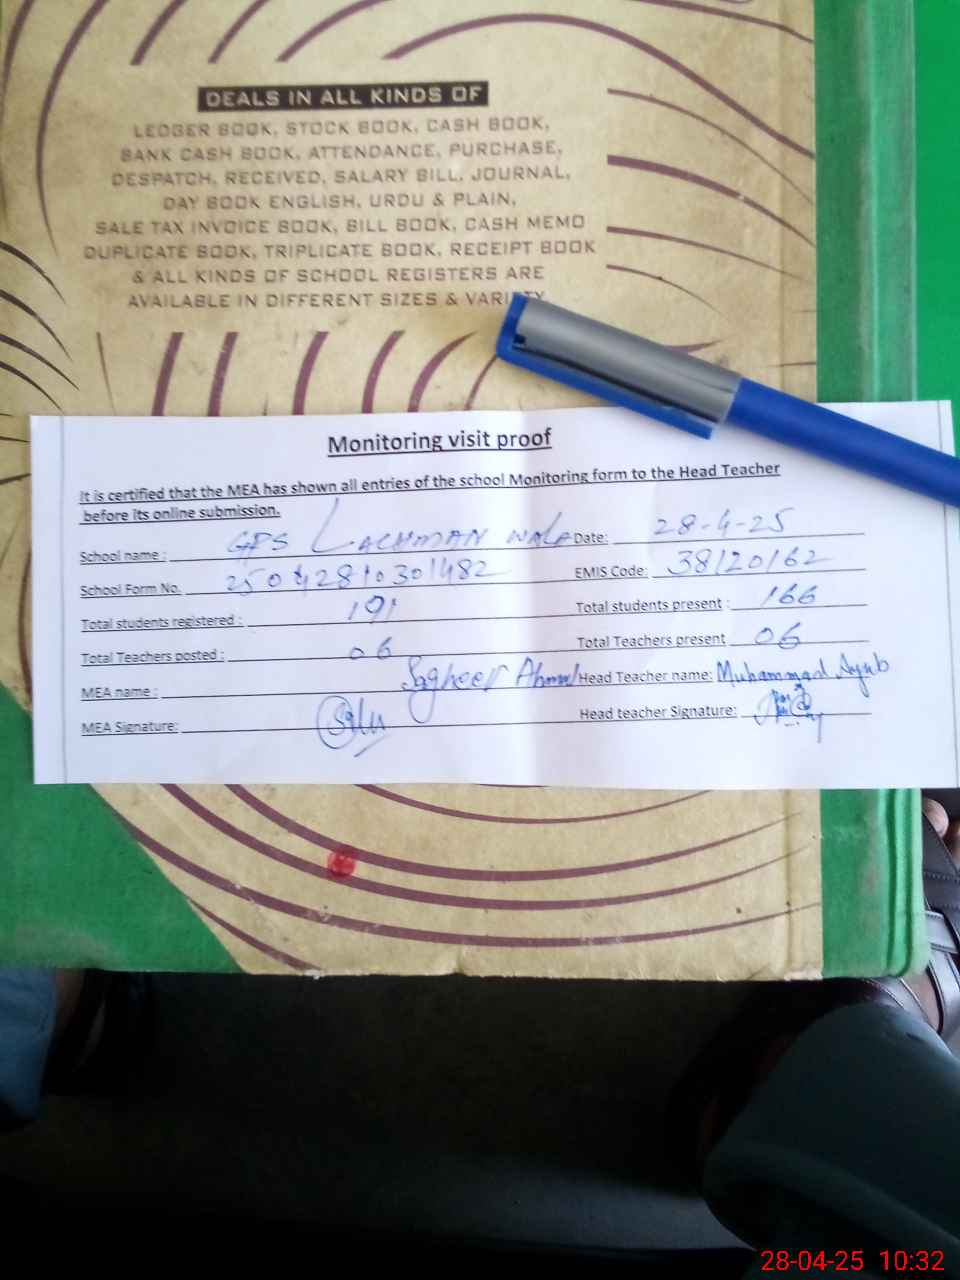 DEALS IN ALL KINDS OF
LEDGER BOOK, STOCK BOOK, CASH BOOK,
BANK CASH BOOK, ATTENDANCE, PURCHASE,
DESPATCH, RECEIVED, SALARY BILL, JOURNAL,
DAY BOOK ENGLISH, URDU & PLAIN,
SALE TAX INVOICE BOOK, BILL BOOK, CASH MEMO
DUPLICATE BOOK, TRIPLICATE BOOK, RECEIPT BOOK
& ALL KINDS OF SCHOOL REGISTERS ARE
AVAILABLE IN DIFFERENT SIZES & VARIETY
Monitoring visit proof
It is certified that the MEA has shown all entries of the school Monitoring form to the Head Teacher
before its online submission.
School name : GPS LACHMAN WALA Date: 28-4-25
School Form No. 25042810301482 EMIS Code: 38120162
Total students registered : 191 Total students present : 166
Total Teachers posted : 06 Total Teachers present 06
MEA name : Sagheer Ahmad Head Teacher name: Muhammad Ayub
MEA Signature: Head teacher Signature:
28-04-25 10:32